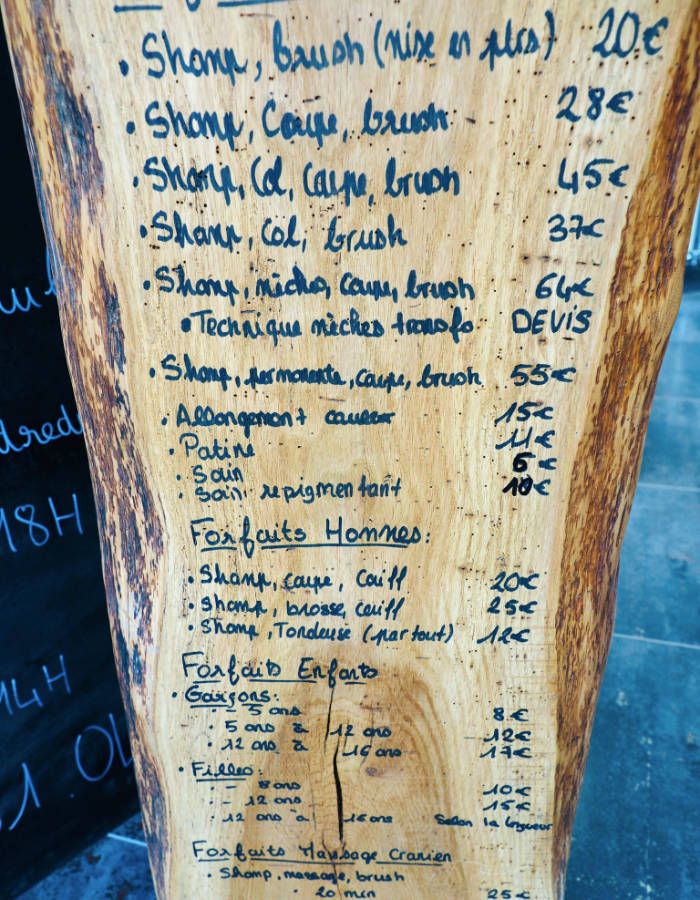 • Shamp, brush (mise en plis) 20€
• Shamp, Coupe, brush 28€
• Shamp, Col, Coupe, brush 45€
• Shamp, Col, brush 37€
• Shamp, mèches, coupe, brush 64€
• Technique mèches transfo DEVIS
• Shamp, permanente, coupe, brush 55€
• Allongement couleur 15€
• Patine 11€
• Soin 6€
• Soin repigmentant 10€
Forfaits Hommes:
• Shamp, coupe, coiff 20€
• Shamp, brosse, coiff 25€
• Shamp, Tondeuse (partout) 12€
Forfaits Enfants
• Garçons:
• - 5 ans 8€
• 5 ans à 12 ans 12€
• 12 ans à 16 ans 17€
• Filles:
• - 8 ans 10€
• - 12 ans 15€
• 12 ans à 16 ans Selon la longueur
Forfaits Massage Cranien
• Shamp, massage, brush
• 20 min 25€
18H
14H